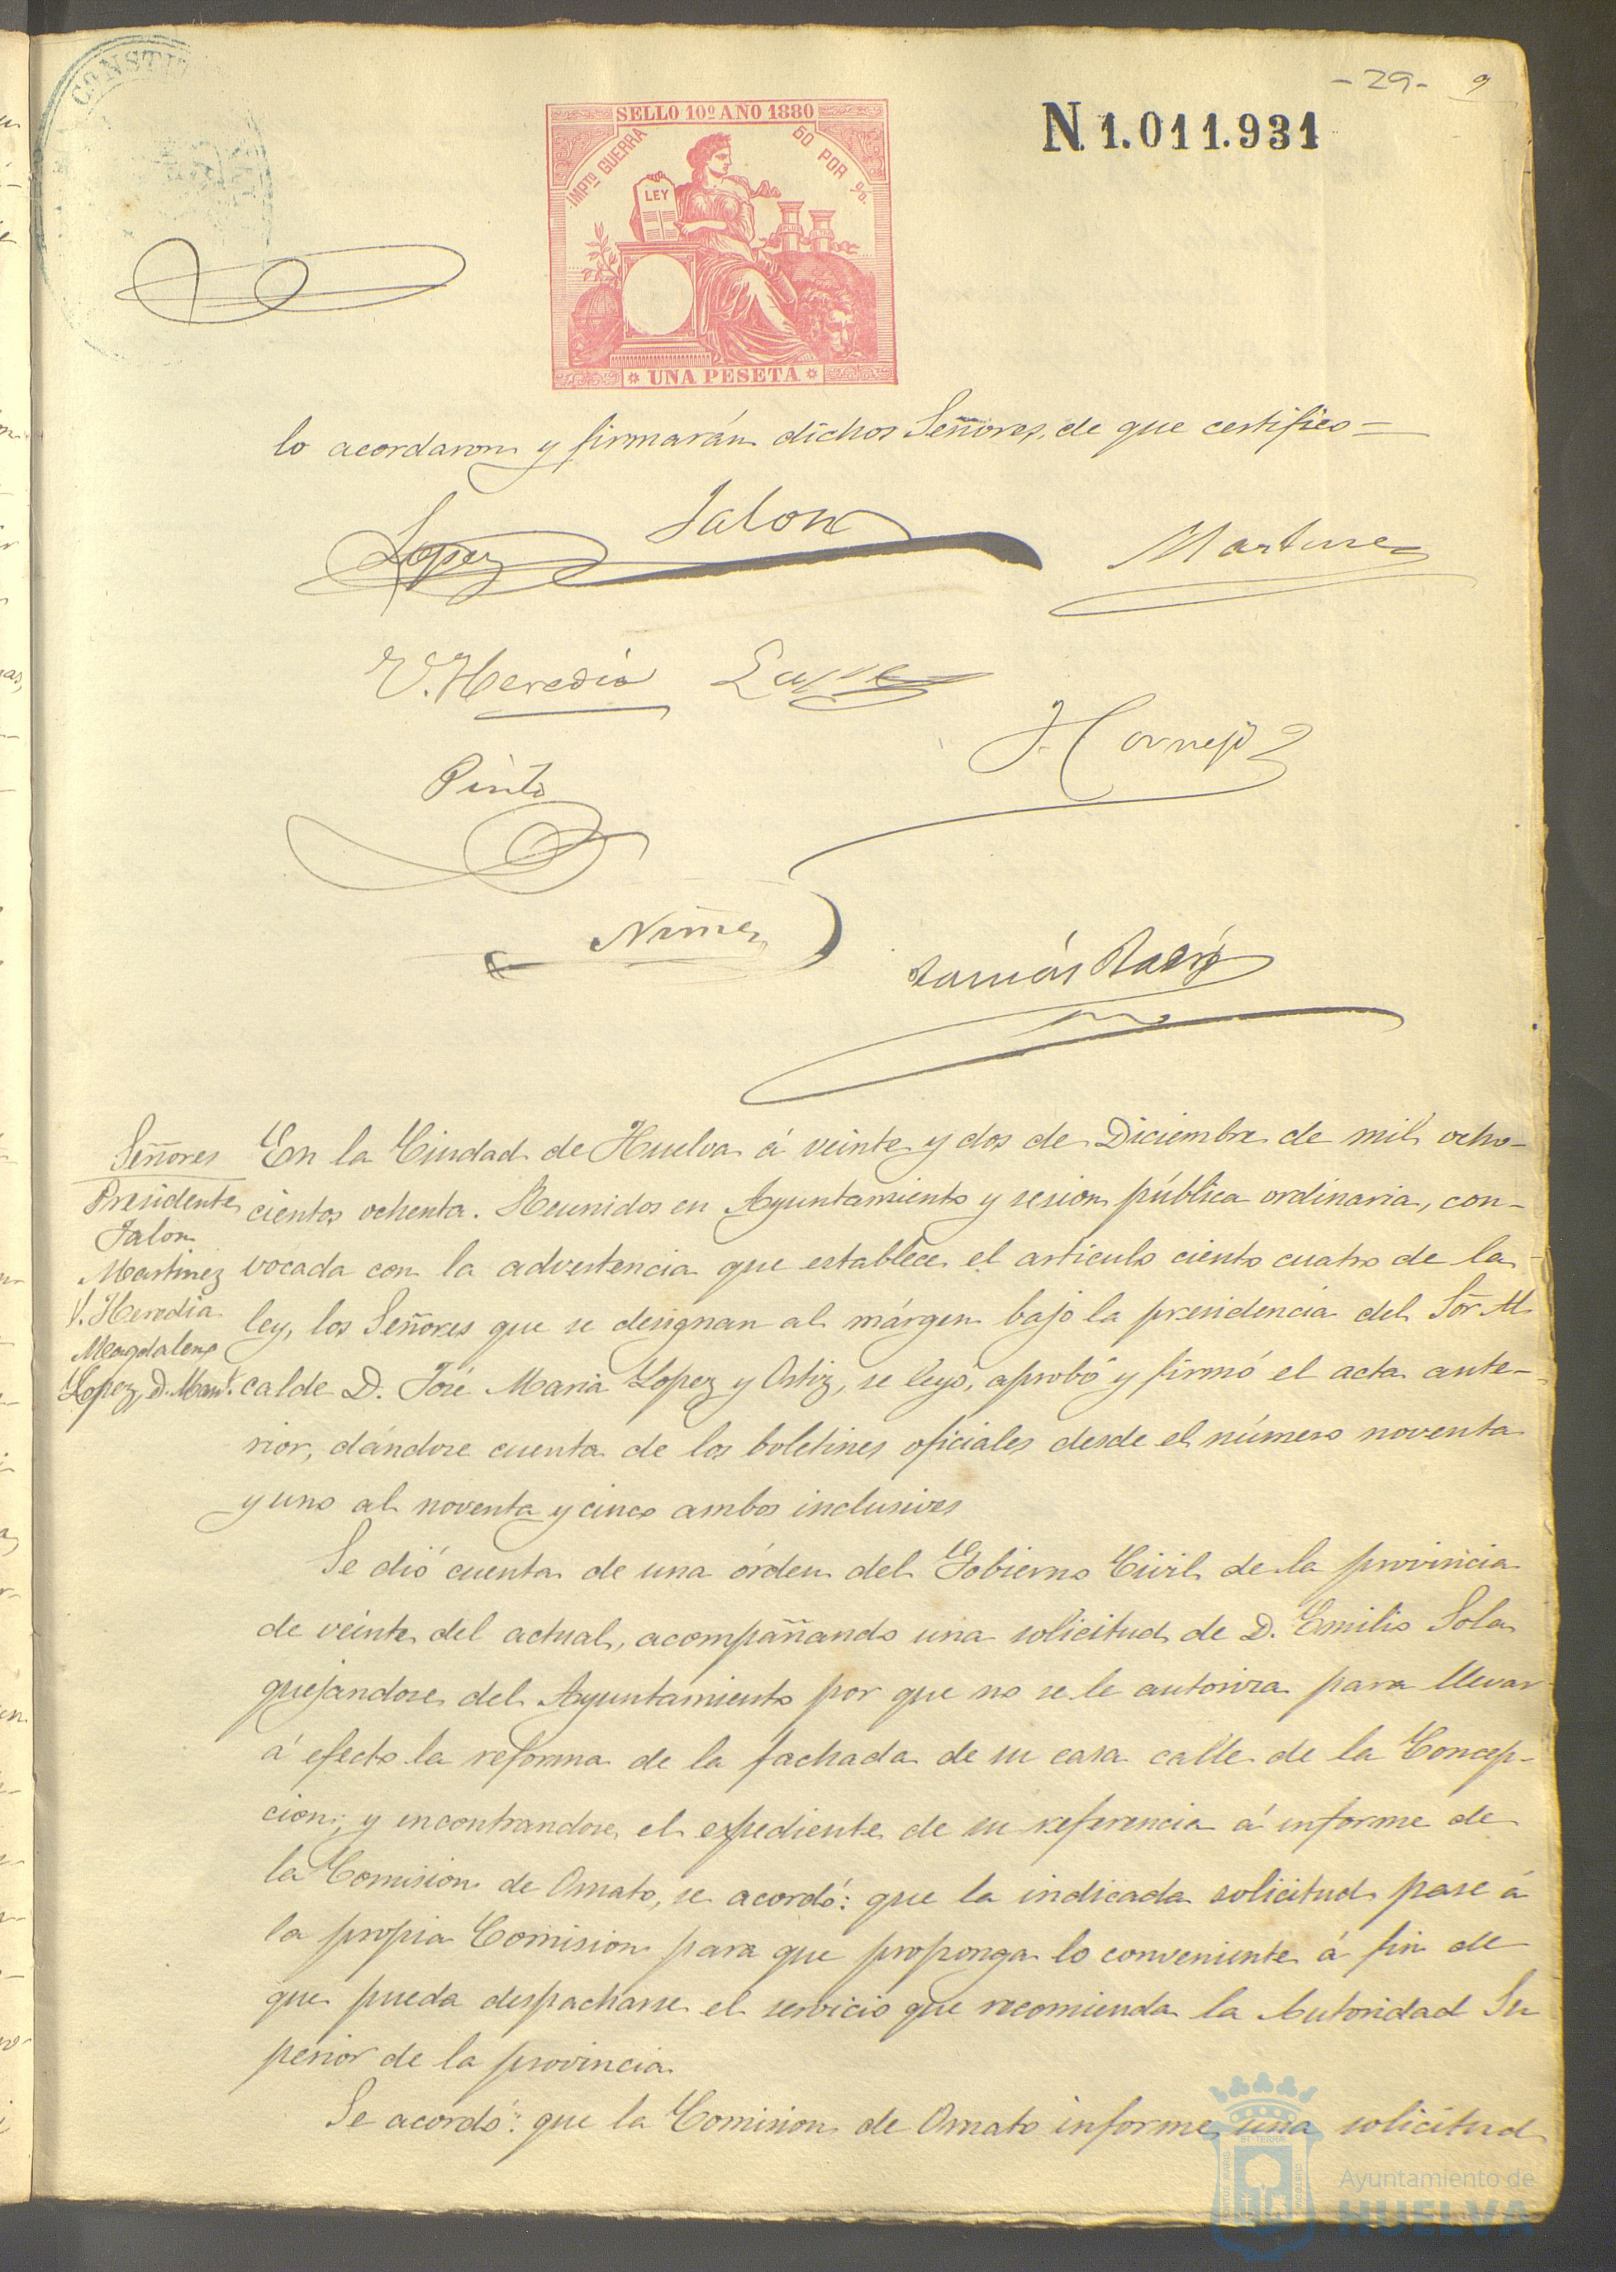 -29- 9
CONSTIT
SELLO 10º AÑO 1880
N 1.011.931
IMPTO GUERRA 50 POR %
LEY
* UNA PESETA *
lo acordaron y firmarán dichos Señores, de que certifico=
Lopez Jalon Martinez
V. Heredia
J. Cornejo
Pinto
Nuñez
Tomás
Señores
Presidente
Jalon
Martinez
V. Heredia
Magdalena
Lopez, D. Manl.
En la Ciudad de Huelva á veinte y dos de Diciembre de mil ocho-
cientos ochenta. Reunidos en Ayuntamiento y sesion pública ordinaria, con-
vocada con la advertencia que establece el articulo ciento cuatro de la
ley, los Señores que se designan al márgen bajo la presidencia del Sor. Al
calde D. José Maria Lopez y Ortiz, se leyó, aprobó y firmó el acta ante-
rior, dándose cuenta de los boletines oficiales desde el número noventa
y uno al noventa y cinco ambos inclusives
Se dió cuenta de una órden del Gobierno Civil de la provincia
de veinte del actual, acompañando una solicitud de D. Emilio Sola
quejandose del Ayuntamiento por que no se le autoriza para llevar
á efecto la reforma de la fachada de su casa calle de la Concep-
cion; y encontrandose el expediente de su referencia á informe de
la Comision de Ornato, se acordó: que la indicada solicitud pase á
la propia Comision para que proponga lo conveniente á fin de
que pueda despacharse el servicio que recomienda la Autoridad Su
perior de la provincia.
Se acordó: que la Comision de Ornato informe una solicitud
Ayuntamiento de
HUELVA